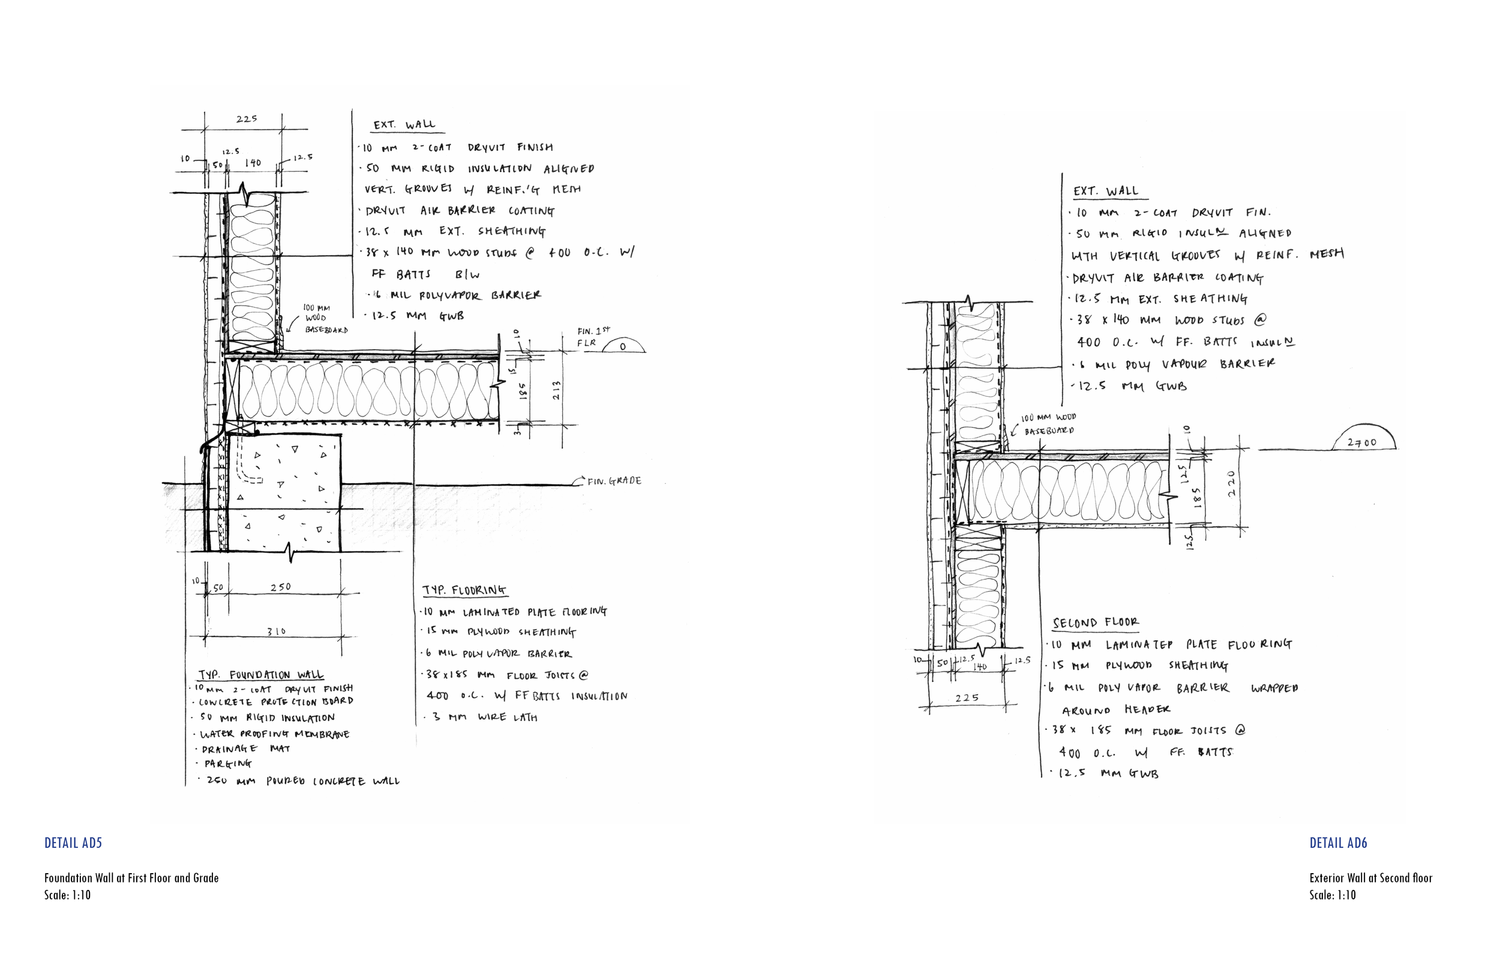 225
10
50
12.5
140
12.5
EXT. WALL
· 10 MM 2-COAT DRYVIT FINISH
· 50 MM RIGID INSULATION ALIGNED
VERT. GROOVES W/ REINF.'G MESH
· DRYVIT AIR BARRIER COATING
· 12.5 MM EXT. SHEATHING
· 38 x 140 MM WOOD STUDS @ 400 O.C. W/
FF BATTS B/W
· 6 MIL POLYVAPOR BARRIER
· 12.5 MM GWB
100 MM
WOOD
BASEBOARD
FIN. 1ST
FLR
0
10
15
185
213
3
FIN. GRADE
10
50
250
310
TYP. FLOORING
· 10 MM LAMINATED PLATE FLOORING
· 15 MM PLYWOOD SHEATHING
· 6 MIL POLY VAPOR BARRIER
· 38 x 185 MM FLOOR JOISTS @
400 O.C. W/ FF BATTS INSULATION
· 3 MM WIRE LATH
TYP. FOUNDATION WALL
· 10 MM 2-COAT DRYVIT FINISH
· CONCRETE PROTECTION BOARD
· 50 MM RIGID INSULATION
· WATER PROOFING MEMBRANE
· DRAINAGE MAT
· PARGING
· 250 MM POURED CONCRETE WALL
DETAIL AD5
Foundation Wall at First Floor and Grade
Scale: 1:10
EXT. WALL
· 10 MM 2-COAT DRYVIT FIN.
· 50 MM RIGID INSULN ALIGNED
WITH VERTICAL GROOVES W/ REINF. MESH
· DRYVIT AIR BARRIER COATING
· 12.5 MM EXT. SHEATHING
· 38 x 140 MM WOOD STUDS @
400 O.C. W/ FF. BATTS INSULN
· 6 MIL POLY VAPOUR BARRIER
· 12.5 MM GWB
100 MM WOOD
BASEBOARD
2700
10
185
220
12.5
10
50
12.5
140
12.5
225
SECOND FLOOR
· 10 MM LAMINATED PLATE FLOORING
· 15 MM PLYWOOD SHEATHING
· 6 MIL POLY VAPOR BARRIER WRAPPED
AROUND HEADER
· 38 x 185 MM FLOOR JOISTS @
400 O.C. W/ FF. BATTS
· 12.5 MM GWB
DETAIL AD6
Exterior Wall at Second floor
Scale: 1:10